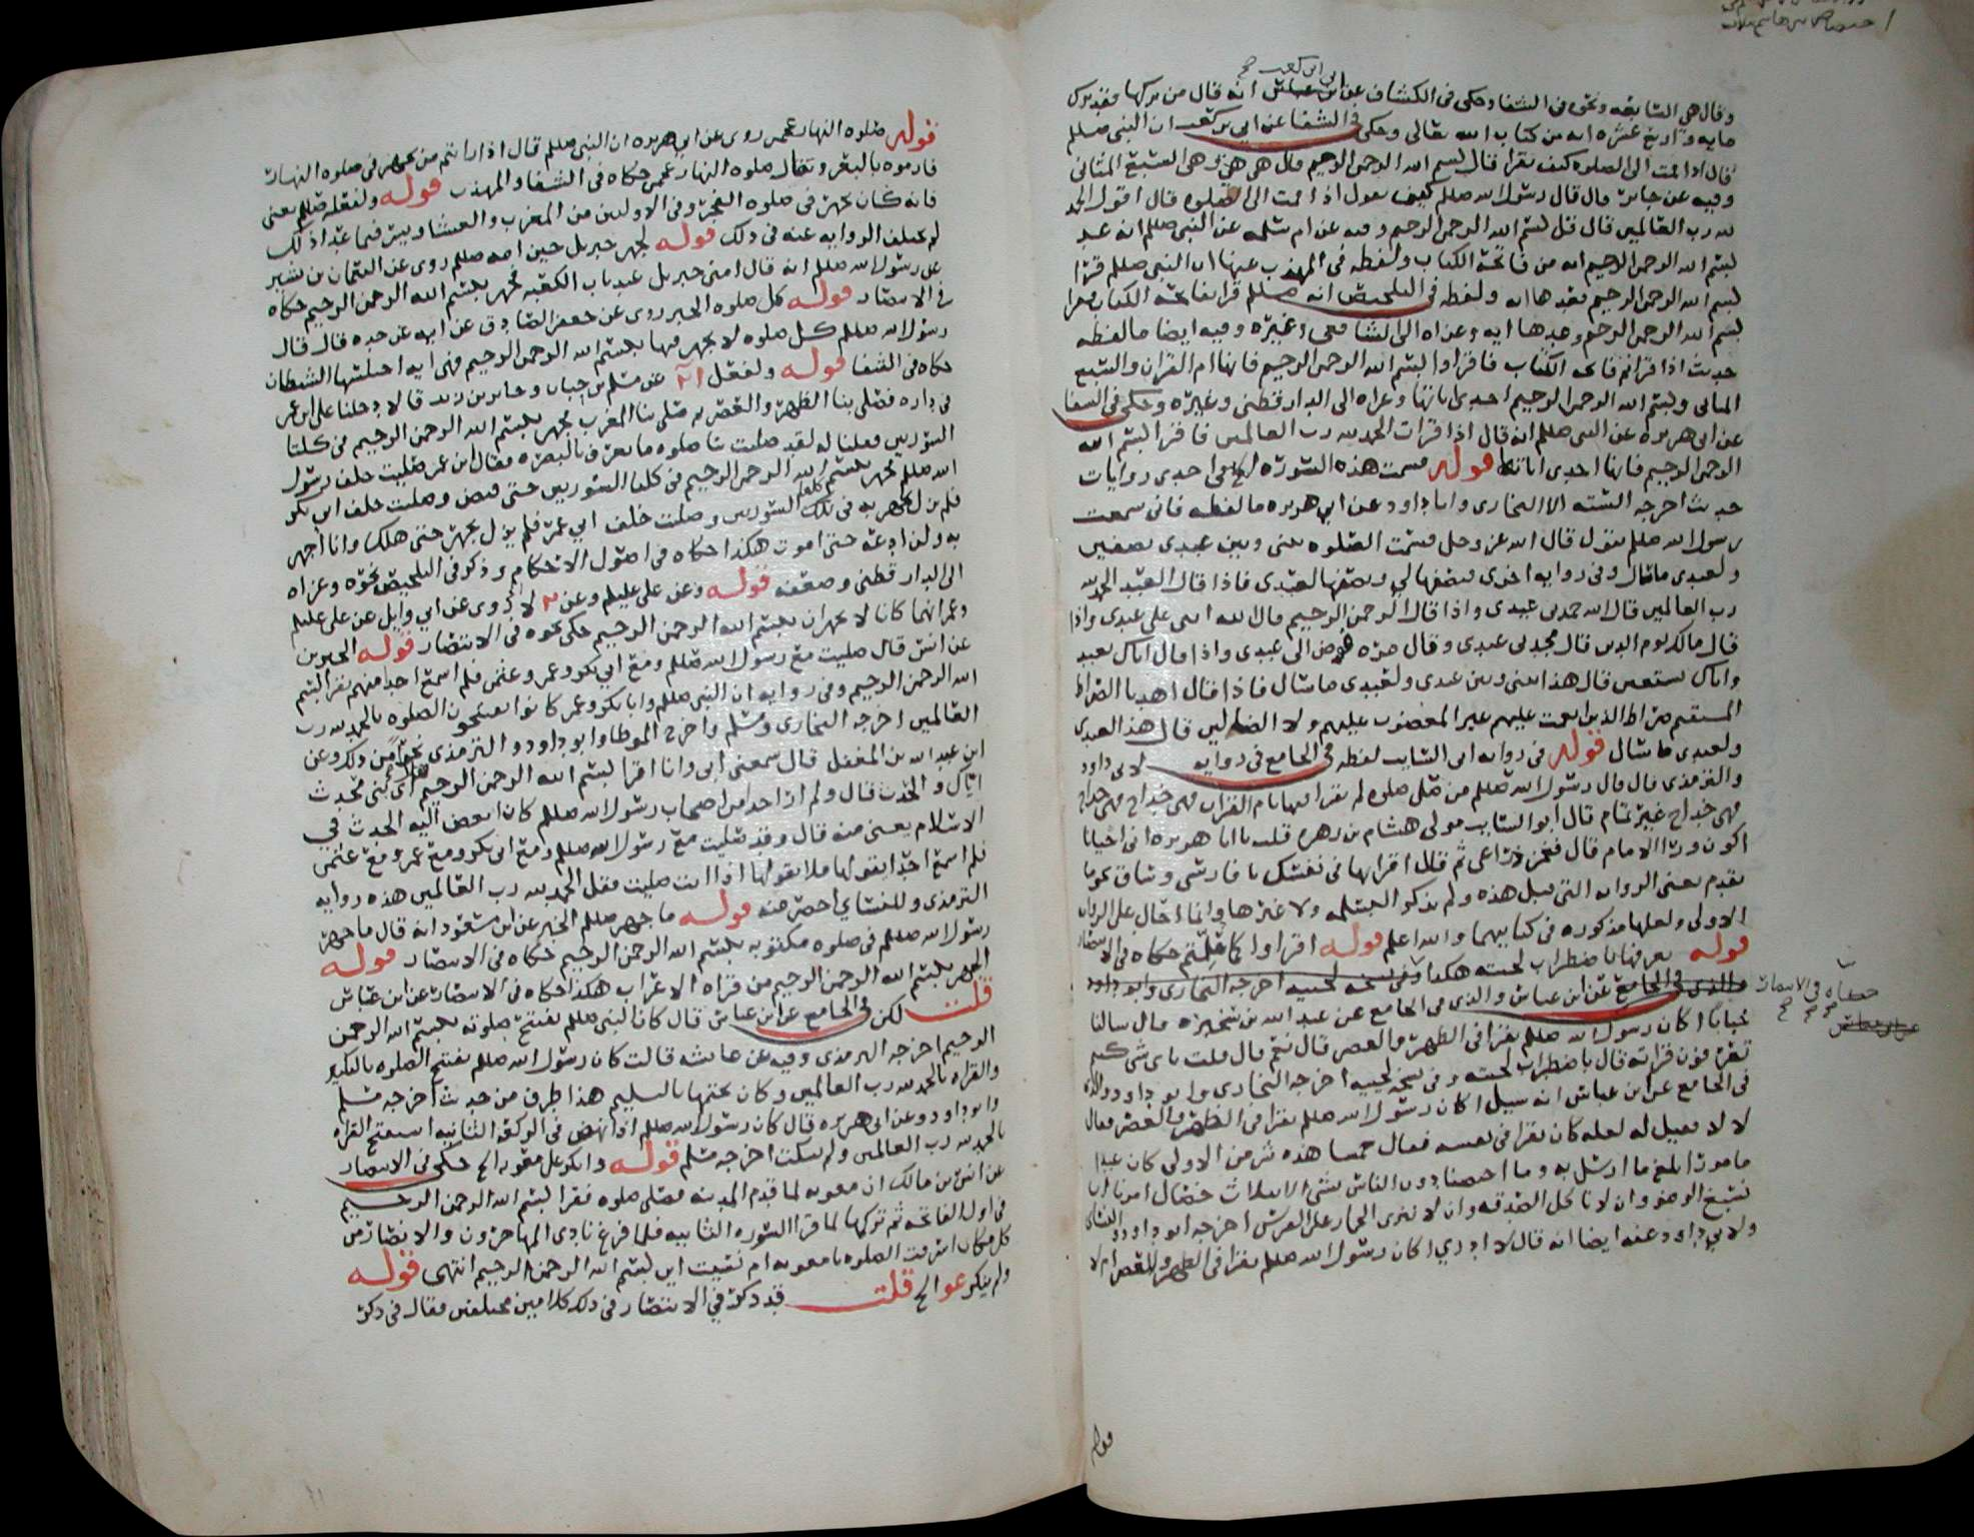 وقال هي السابعه ونحوه في الشفا وحكى في الكشاف عن ابن عباس انه قال من تركها فقد ترك
ابي ابن كعب صح
مايه واربع عشره ايه من كتاب الله تعالى وحكى في الشفا عن ابي بن كعب ان النبي صللم
قال اذا قمت الى الصلوه كيف تقرا قال بسم الله الرحمن الرحيم قال هي هي وهي السبع المثاني
وفيه عن جابر قال قال رسول الله صللم كيف تقول اذا قمت الى الصلوه قال اقول الحمد
لله رب العالمين قال قل بسم الله الرحمن الرحيم وفيه عن ام سلمه عن النبي صللم انه عد
بسم الله الرحمن الرحيم ايه من فاتحة الكتاب ولفظه في المهذب عنها ان النبي صللم قرا
بسم الله الرحمن الرحيم فعدها ايه ولفظه في التلخيص انه صللم قرا فاتحة الكتاب فقرا
بسم الله الرحمن الرحيم وعدها ايه وعزاه الى الشافعي وغيره وفيه ايضا ما لفظه
حديث اذا قراتم فاتحة الكتاب فاقراوا بسم الله الرحمن الرحيم فانها ام القران والسبع
المثاني وبسم الله الرحمن الرحيم احدى اياتها وعزاه الى الدارقطني وغيره وحكى في الشفا
عن ابي هريره عن النبي صللم انه قال اذا قرات الحمد لله رب العالمين فاقرا بسم الله
الرحمن الرحيم فانها احدى اياتها قوله قسمت هذه السوره الخ هو احدى روايات
حديث اخرجه السته الا البخاري وابا داود عن ابي هريره ما لفظه فاني سمعت
رسول الله صللم يقول قال الله عز وجل قسمت الصلوه بيني وبين عبدي نصفين
ولعبدي ما سال وفي روايه اخرى فنصفها لي ونصفها لعبدي فاذا قال العبد الحمد لله
رب العالمين قال الله حمدني عبدي واذا قال الرحمن الرحيم قال الله اثنى علي عبدي واذا
قال مالك يوم الدين قال مجدني عبدي وقال مره فوض الي عبدي واذا قال اياك نعبد
واياك نستعين قال هذا بيني وبين عبدي ولعبدي ما سال فاذا قال اهدنا الصراط
المستقيم صراط الذين انعمت عليهم غير المغضوب عليهم ولا الضالين قال هذا لعبدي
ولعبدي ما سال قوله في روايه ابي السايب لفظه في الجامع في روايه لابي داود
والترمذي قال قال رسول الله صللم من صلى صلوه لم يقرا فيها بام القران فهي خداج فهي خداج
فهي خداج غير تمام قال ابو السايب مولى هشام بن زهره قلت يا ابا هريره اني احيانا
اكون ورا الامام قال فغمز ذراعي ثم قال اقرا بها في نفسك يا فارسي وساق نحو ما
تقدم يعني الروايه التي قبل هذه ولم يذكر البسمله ولا غيرها وانما احال على الروايه
الاولى ولعلها مذكوره في كتابيهما والله اعلم قوله اقراوا كما علمتم حكاه في الانتصار
قوله يعرفها باضطراب لحيته هكذا وفي نسخه لحييه اخرجه البخاري وابو داود
والذي في الجامع عن ابن عباس والذي في الجامع عن عبد الله بن سخبره قال سالنا
خبابا اكان رسول الله صللم يقرا في الظهر والعصر قال نعم قال قلت باي شي كنتم
تعرفون قراته قال باضطراب لحيته وفي نسخه لحييه اخرجه البخاري وابو داود والذي
في الجامع عن ابن عباس انه سيل اكان رسول الله صللم يقرا في الظهر والعصر فقال
لا لا فقيل له لعله كان يقرا في نفسه فقال خمشا هذه شر من الاولى كان عبدا
مامورا بلغ ما ارسل به وما اختصنا دون الناس بشي الا بثلاث خصال امرنا ان
نسبغ الوضو وان لا ناكل الصدقه وان لا ننزي الحمار على الفرس اخرجه ابو داود والنساي
ولابي داود عنه ايضا انه قال لا ادري اكان رسول الله صللم يقرا في الظهر والعصر ام لا
حكاه في الانتصار
عن ابن عباس صح
قوله
قوله صلوه النهار عجمى روي عن ابي هريره ان النبي صللم قال اذا رايتم من يجهر في صلوه النهار
فارموه بالبعر ويقال صلوه النهار عجمى حكاه في الشفا والمهذب قوله ولفعله صللم يعني
فانه كان يجهر في صلوه الفجر وفي الاوليين من المغرب والعشا ويسر فيما عدا ذلك
لم تختلف الروايه عنه في ذلك قوله لجهر جبريل حين امه صللم روي عن النعمان بن بشير
عن رسول الله صللم انه قال امني جبريل عند باب الكعبه فجهر ببسم الله الرحمن الرحيم حكاه
في الانتصار قوله كل صلوه الخبر روي عن جعفر الصادق عن ابيه عن جده قال قال
رسول الله صللم كل صلوه لا يجهر فيها ببسم الله الرحمن الرحيم فهي ايه اختلسها الشيطان
حكاه في الشفا قوله ولفعل عن مسلم بن حباب وجابر بن زيد قالا دخلنا على ابن عمر
في داره فصلى بنا الظهر والعصر ثم صلى بنا المغرب فجهر ببسم الله الرحمن الرحيم في كلتا
السورتين فقلنا له لقد صليت بنا صلوه ما تعرف بالبصره فقال ابن عمر صليت خلف رسول
الله صللم فجهر ببسم الله الرحمن الرحيم في كلتا السورتين حتى قبض وصليت خلف ابي بكر
فلم يزل يجهر به في تلك السورتين وصليت خلف ابي عمر فلم يزل يجهر حتى هلك وانا اجهر
به ولن ادعه حتى اموت هكذا حكاه في اصول الاحكام وذكر في التلخيص نحوه وعزاه
الى الدارقطني وضعفه قوله وعن علي عليلم وعن لا روي عن ابي وايل عن علي عليلم
وعمر انهما كانا لا يجهران ببسم الله الرحمن الرحيم حكى نحوه في الانتصار قوله الخبرين
عن انس قال صليت مع رسول الله صللم ومع ابي بكر وعمر وعثمن فلم اسمع احدا منهم يقرا بسم
الله الرحمن الرحيم وفي روايه ان النبي صللم وابا بكر وعمر كانوا يفتتحون الصلوه بالحمد لله رب
العالمين اخرجه البخاري ومسلم واخرج الموطا وابو داود والترمذي نحوا من ذلك وعن
ابن عبد الله بن المغفل قال سمعني ابي وانا اقرا بسم الله الرحمن الرحيم فقال اي بني محدث
اياك والحدث قال ولم ار احدا من اصحاب رسول الله صللم كان ابغض اليه الحدث في
الاسلام يعني منه قال وقد صليت مع رسول الله صللم ومع ابي بكر ومع عمر ومع عثمن
فلم اسمع احدا يقولها فلا تقولها اذا انت صليت فقل الحمد لله رب العالمين هذه روايه
الترمذي وللنساي اخصر منه قوله ما جهر صللم الخبر عن ابن مسعود انه قال ما جهر
رسول الله صللم في صلوه مكتوبه ببسم الله الرحمن الرحيم حكاه في الانتصار قوله
الجهر ببسم الله الرحمن الرحيم من قراه الاعراب هكذا حكاه في الانتصار عن ابن عباس
قلت لكن في الجامع عن ابن عباس قال كان النبي صللم يفتتح صلوته ببسم الله الرحمن
الرحيم اخرجه الترمذي وفيه عن عائشه قالت كان رسول الله صللم يفتتح الصلوه بالتكبير
والقراه بالحمد لله رب العالمين وكان يختمها بالتسليم هذا طرف من حديث اخرجه مسلم
وابو داود وعن ابي هريره قال كان رسول الله صللم اذا نهض في الركعه الثانيه استفتح القراه
بالحمد لله رب العالمين ولم يسكت اخرجه مسلم قوله وانكر على معويه الخ حكى في الانتصار
عن انس بن مالك ان معويه لما قدم المدينه فصلى صلوه فقرا بسم الله الرحمن الرحيم
في اول الفاتحه ثم تركها لما قرا السوره الثانيه فلما فرغ نادى المهاجرون والانصار من
كل مكان اسرقت الصلوه يا معويه ام نسيت اين بسم الله الرحمن الرحيم انتهى قوله
ولم ينكر عو الخ قلت قد ذكر في الانتصار في ذلك كلامين مختلفين فقال في ذكر